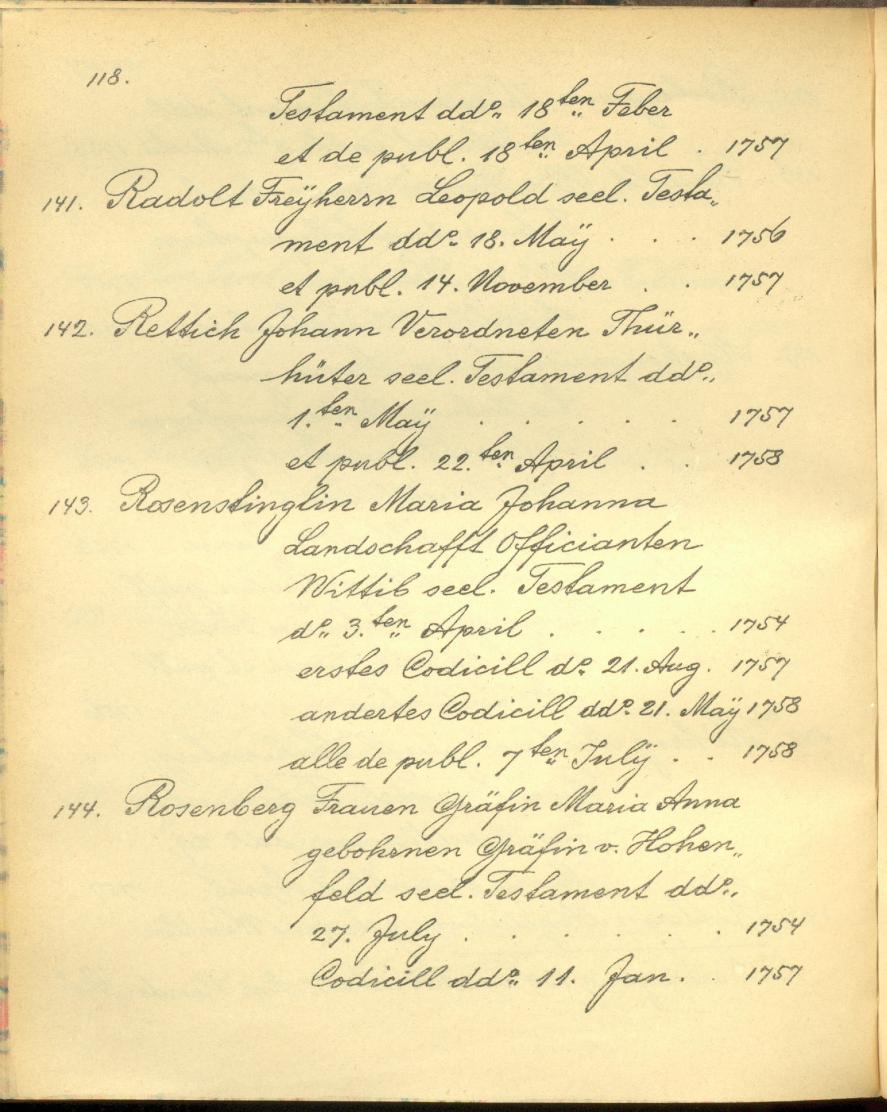 118.
Testament dd⁰„ 18ᵗᵉⁿ„ Feber
et de publ. 18ᵗᵉⁿ„ April . 1757
141. Radolt Freÿherrn Leopold seel. Testa„
ment dd⁰„ 18. Maÿ . . . 1756
et publ. 14. November . . 1757
142. Rettich Johann Verordneten Thür„
hüter seel. Testament dd⁰„
1.ᵗᵉⁿ„ Maÿ . . . . . . 1757
et publ. 22.ᵗᵉⁿ„ April . . 1758
143. Rosenstinglin Maria Johanna
Landschafft Officianten
Wittib seel. Testament
d⁰„ 3.ᵗᵉⁿ„ April . . . . . 1754
erstes Codicill d⁰„ 21. Aug. 1757
andertes Codicill dd⁰„ 21. Maÿ 1758
alle de publ. 7ᵗᵉⁿ„ Julÿ . . 1758
144. Rosenberg Frauen Gräfin Maria Anna
gebohrnen Gräfin v. Hohen„
feld seel. Testament dd⁰„
27. July . . . . . . 1754
Codicill dd⁰„ 11. Jan. . 1757